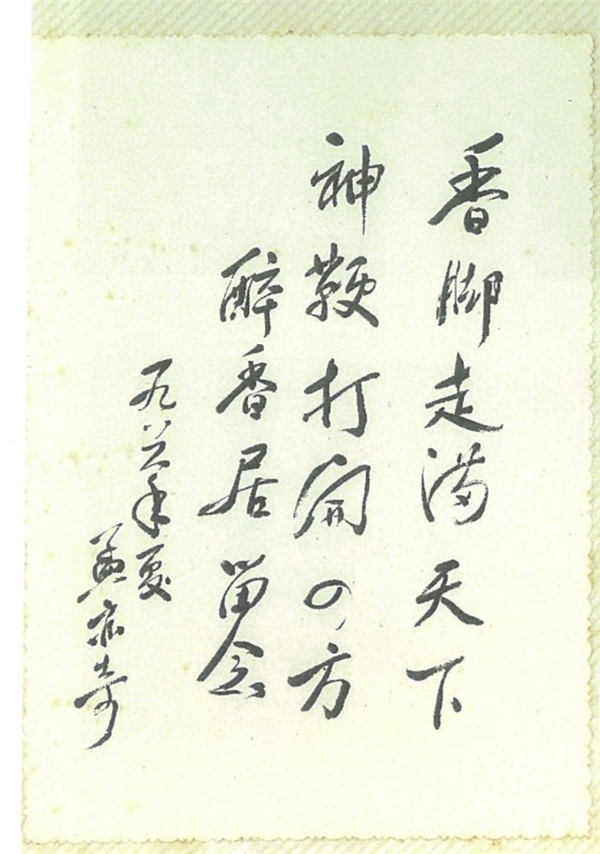 香脚走满天下
神鞭打開四方
醉香居留念
一九八年夏
孟亦奇